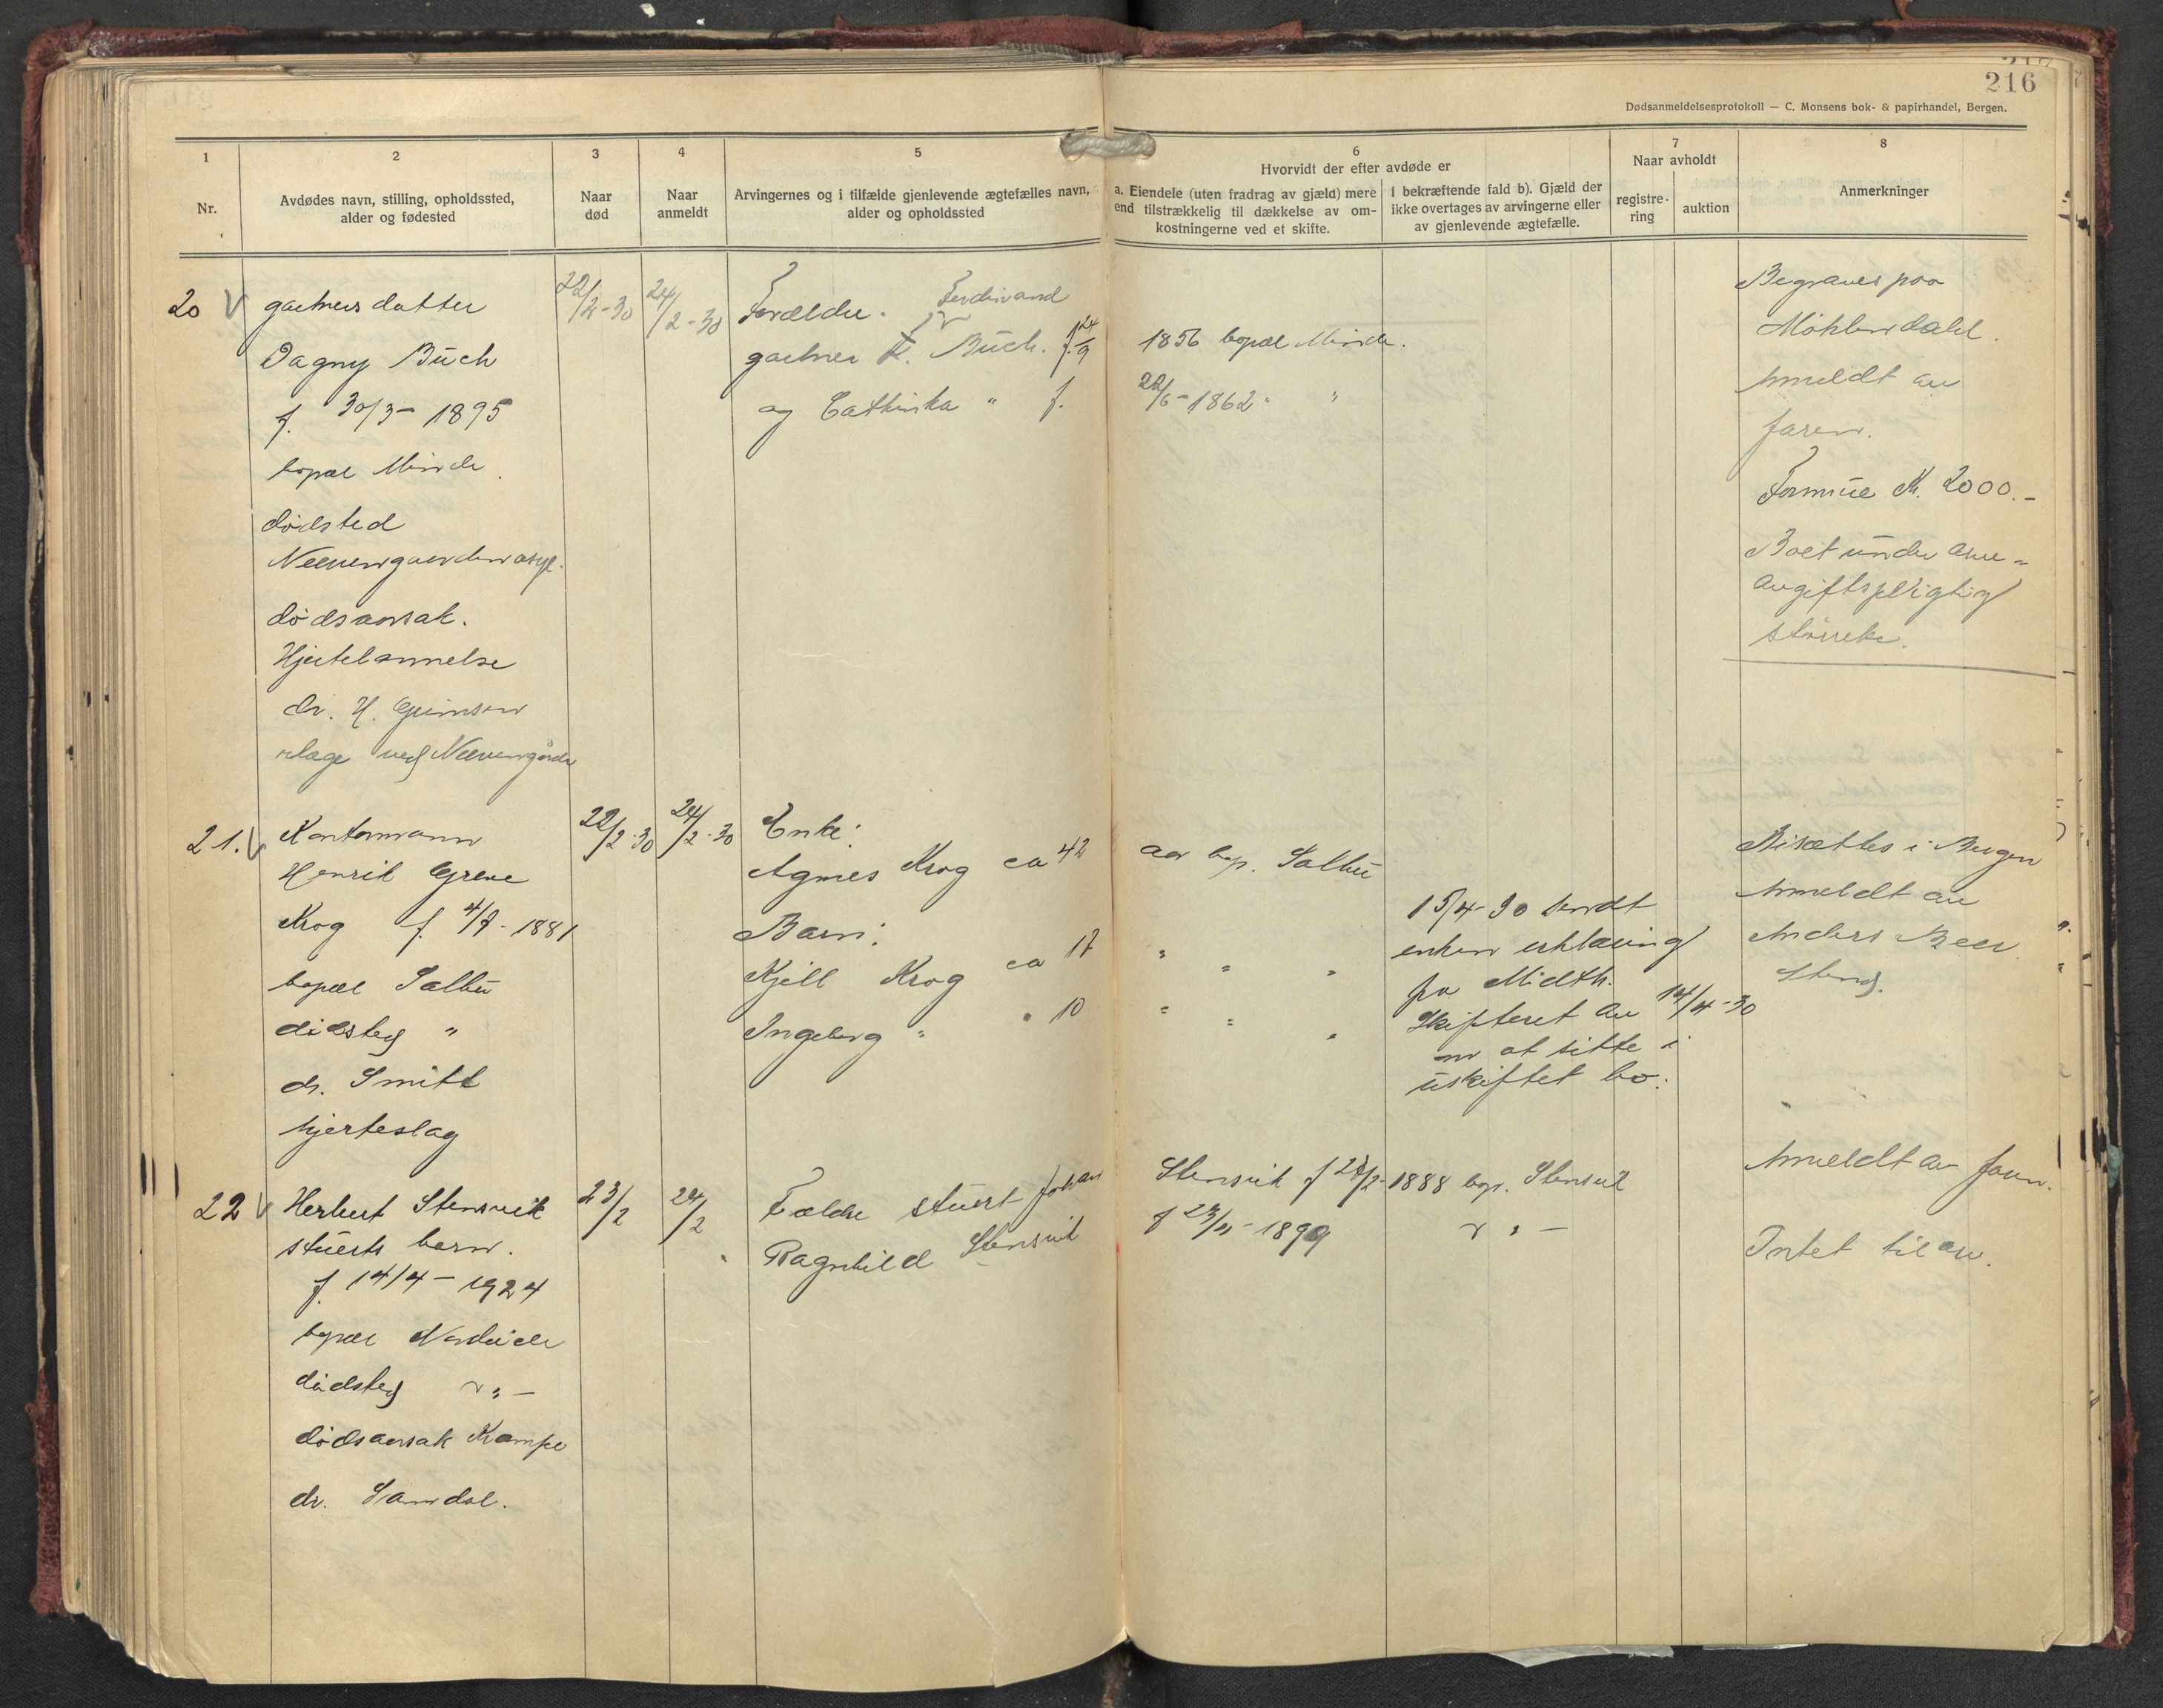 216
Dødsanmeldelsesprotokoll — C. Monsens bok- & papirhandel, Bergen.
1
Nr.
2
Avdødes navn, stilling, opholdssted,
alder og fødested
3
Naar
død
4
Naar
anmeldt
5
Arvingernes og i tilfælde gjenlevende ægtefælles navn,
alder og opholdssted
6
Hvorvidt der efter avdøde er
a. Eiendele (uten fradrag av gjæld) mere
end tilstrækkelig til dækkelse av om-
kostningerne ved et skifte.
I bekræftende fald b). Gjæld der
ikke overtages av arvingerne eller
av gjenlevende ægtefælle.
7
Naar avholdt
registre-
ring
auktion
8
Anmerkninger
20
gartners datter
Dagny Büch
f. 30/3 - 1895
bopæl Minde.
dødsted
Neevengaardens asyl.
dødsaarsak.
Hjertelammelse
dr. H.
læge ved Neevengården
22/2-30
24/2-30
Forældre.
Ferdinand
gartner Fr. Büch. f. 24/9
og Cathinka " f.
1856 bopæl Minde.
22/6 - 1862 " "
Begraves paa
Møhlendahl.
Anmeldt av
faren.
Formue Kr. 2000.-
Boet under arve-
avgiftspligtig
størrelse.
21.
Kontormann
Henrik Greve
Krog f. 4/7 - 1881
bopæl Salhu
dødsted "
dr. Smitt
hjerteslag
22/2-30
24/2-30
Enke:
Agnes Krog ca 42
Barn:
Kjell Krog ca 17
Ingeborg " " 10
aar bop. Salhu
" " "
" " "
15/4-30 sendt
enken erklæring
fra Midth.
Skifteret av 14/4-30
om at sitte i
uskiftet bo.
Bisættes i Bergen
Anmeldt av
Anders Beer
Stend.
22
Herbert Stensvik
stuerts barn.
f. 14/4 - 1924
bopæl
dødsted - " -
dødsaarsak Krampe
dr. Samdal.
23/2
24/2
Fældre stuert Johan
Ragnhild Stensvik
Stensvik f 28/2-1888 bop. Stensvik
f 23/11 - 1899 - " -
Anmeldt av faren.
Intet til arv.